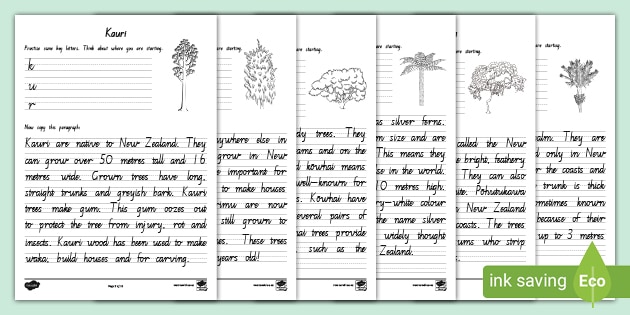 Kauri
Practise some key letters. Think about where you are starting.
k
u
r
Now copy this paragraph:
Kauri are native to New Zealand. They
can grow over 50 metres tall and 16
metres wide. Grown trees have long,
straight trunks and greyish bark. Kauri
trees make gum. This gum oozes out
to protect the tree from injury, rot and
insects. Kauri wood has been used to make
waka, build houses and for carving.
starting.
nywhere else in
grow in New
e important for
to make houses
rimu are now
still grown to
s. These trees
years old!
starting.
dy trees. They
ns and on the
d kōwhai means
well-known for
s. Kowhai have
several pairs of
hai trees provide
such as the
starting.
as silver ferns.
m size and are
This means they
se in the world.
10 metres high.
ry-white colour
the name silver
widely thought
Zealand.
starting.
called the New
e bright, feathery
They can also
te. Pohutukawa
New Zealand
s. The trees
ums who strip
starting.
alm. They are
nd only
r the coasts and
trunk is thick
ometimes known
because of their
up to 3 metres
ink saving
Eco